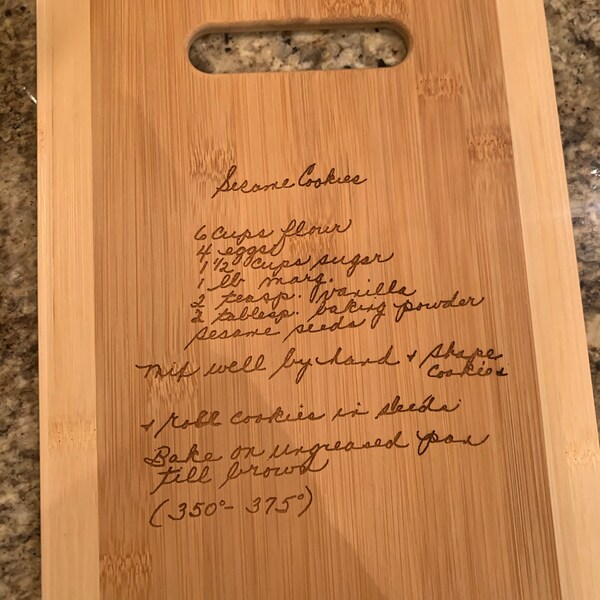 Sesame Cookies
6 cups flour
4 eggs
1 1/2 cups sugar
1 lb marg.
2 teasp. vanilla
2 tablesp. baking powder
sesame seeds
Mix well by hand + shape
cookies
+ roll cookies in seeds
Bake on ungreased pan
till brown
(350°- 375°)